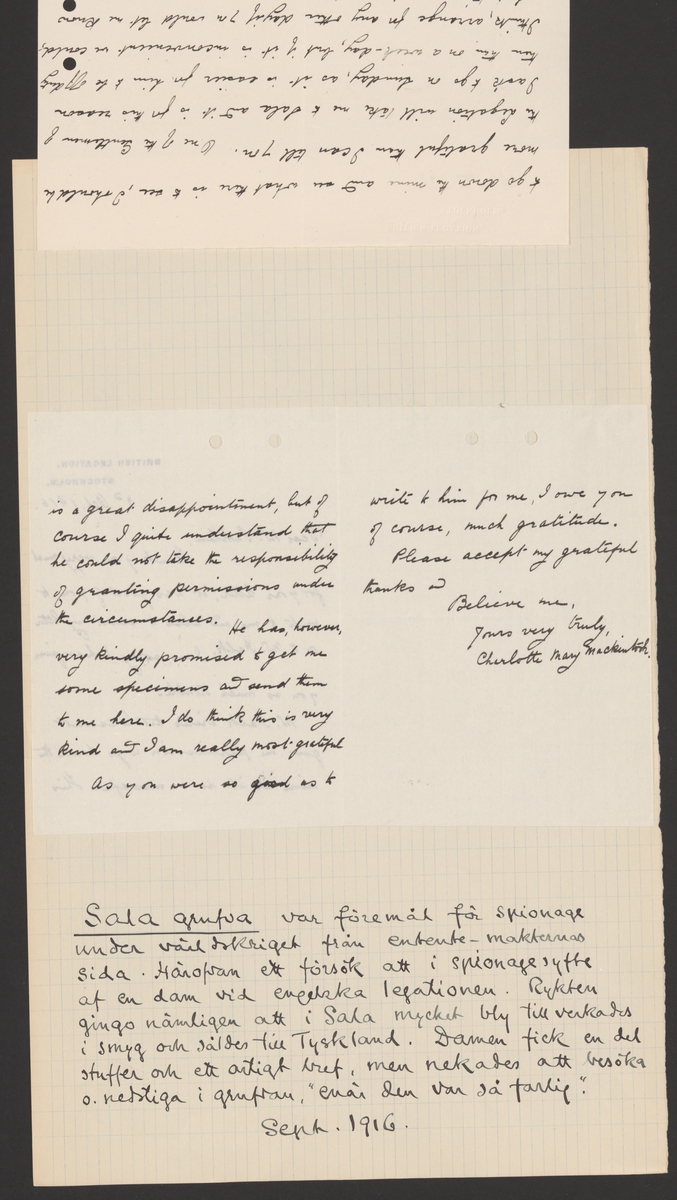 to go down the mine and see what there is to see, I should be
more grateful than I can tell you. One of the Gentlemen of
the Legation will take me to Sala and it is for this reason
I ask to go on Sunday, as it is easier for him to be off duty
then than on a week-day, but if it is inconvenient we could,
I think, arrange for any other day if you would let me know
BRITISH LEGATION,
STOCKHOLM.
is a great disappointment, but of
course I quite understand that
he could not take the responsibility
of granting permissions under
the circumstances. He has, however,
very kindly promised to get me
some specimens and send them
to me here. I do think this is very
kind and I am really most grateful
As you were so good as to
write to him for me, I owe you
of course, much gratitude.
Please accept my grateful
thanks and
Believe me,
Yours very truly,
Charlotte Mary Mackintosh.
Sala grufva var föremål för spionage
under världskriget från entente-makternas
sida. Härofvan ett försök att i spionagesyfte
af en dam vid engelska legationen. Rykten
gingo nämligen att i Sala mycket bly tillverkades
i smyg och såldes till Tyskland. Damen fick en del
stuffer och ett artigt bref, men nekades att besöka
o. nedstiga i grufvan, "enär den var så farlig".
Sept. 1916.